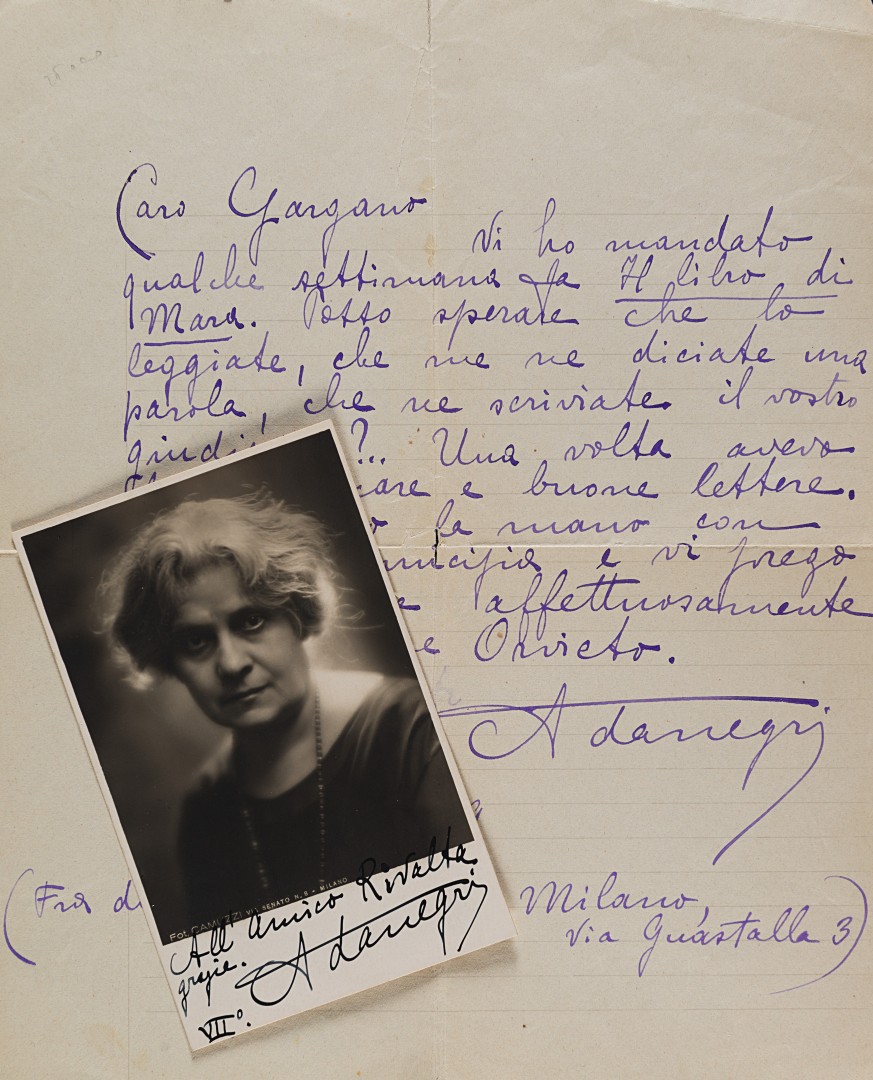 Caro Gargano
Vi ho mandato
qualche settimana fa Il libro di
Mara. Posso sperare che lo
leggiate, che me ne diciate una
parola, che ne scriviate il vostro
?... Una volta avevo
care e buone lettere.
la mano con
e vi prego
affettuosamente
e Orvieto.
Adanegri
(Fra
Milano,
Via Guastalla 3)
Fot. CAMUZZI VIA SENATO N. 8 - MILANO
All'Amico Rivalta
grazie.
Adanegri
VIIº.